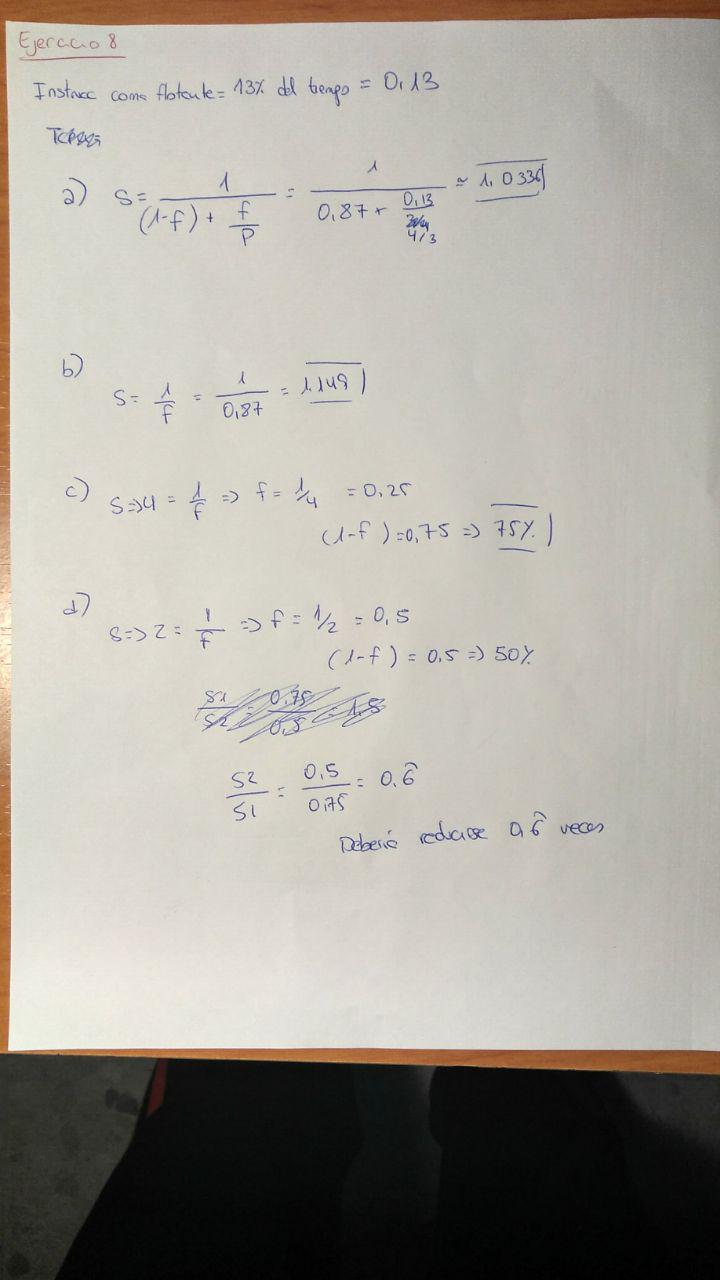 Ejercicio 8
Instrucc coma flotante = 13% del tiempo = 0,13
a) S = 1 / ((1-f) + f/P) = 1 / (0,87 + 0,13 / 4/3) ≃ 1,0336
b)
S = 1/f = 1/0,87 = 1.149
c) S => 4 = 1/f => f = 1/4 = 0,25
(1-f) = 0,75 => 75%
d)
S => 2 = 1/f => f = 1/2 = 0,5
(1-f) = 0,5 => 50%
S1/S2 = 0,75/0,5 = 1,5
S2/S1 = 0,5/0,75 = 0,6̂
Debería reducirse 0,6̂ veces